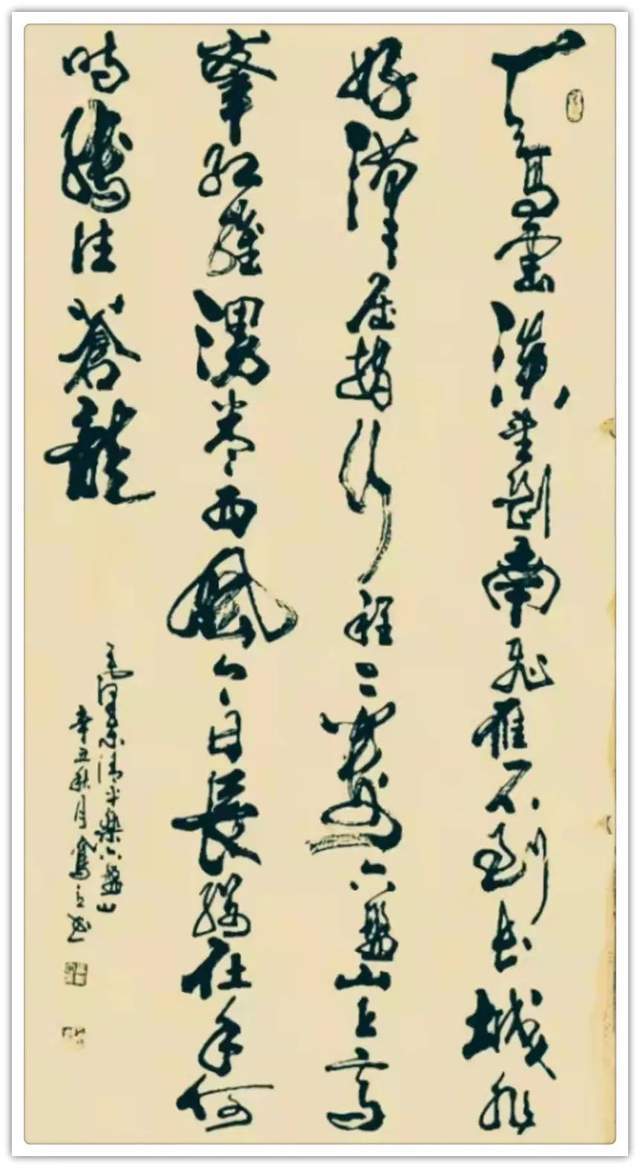 天高雲淡望断南飛雁不到长城非
好漢屈指行程二萬六盤山上高
峯紅旗漫卷西風今日長纓在手何
時縛住蒼龍
毛澤東清平樂六盤山
辛丑秋月